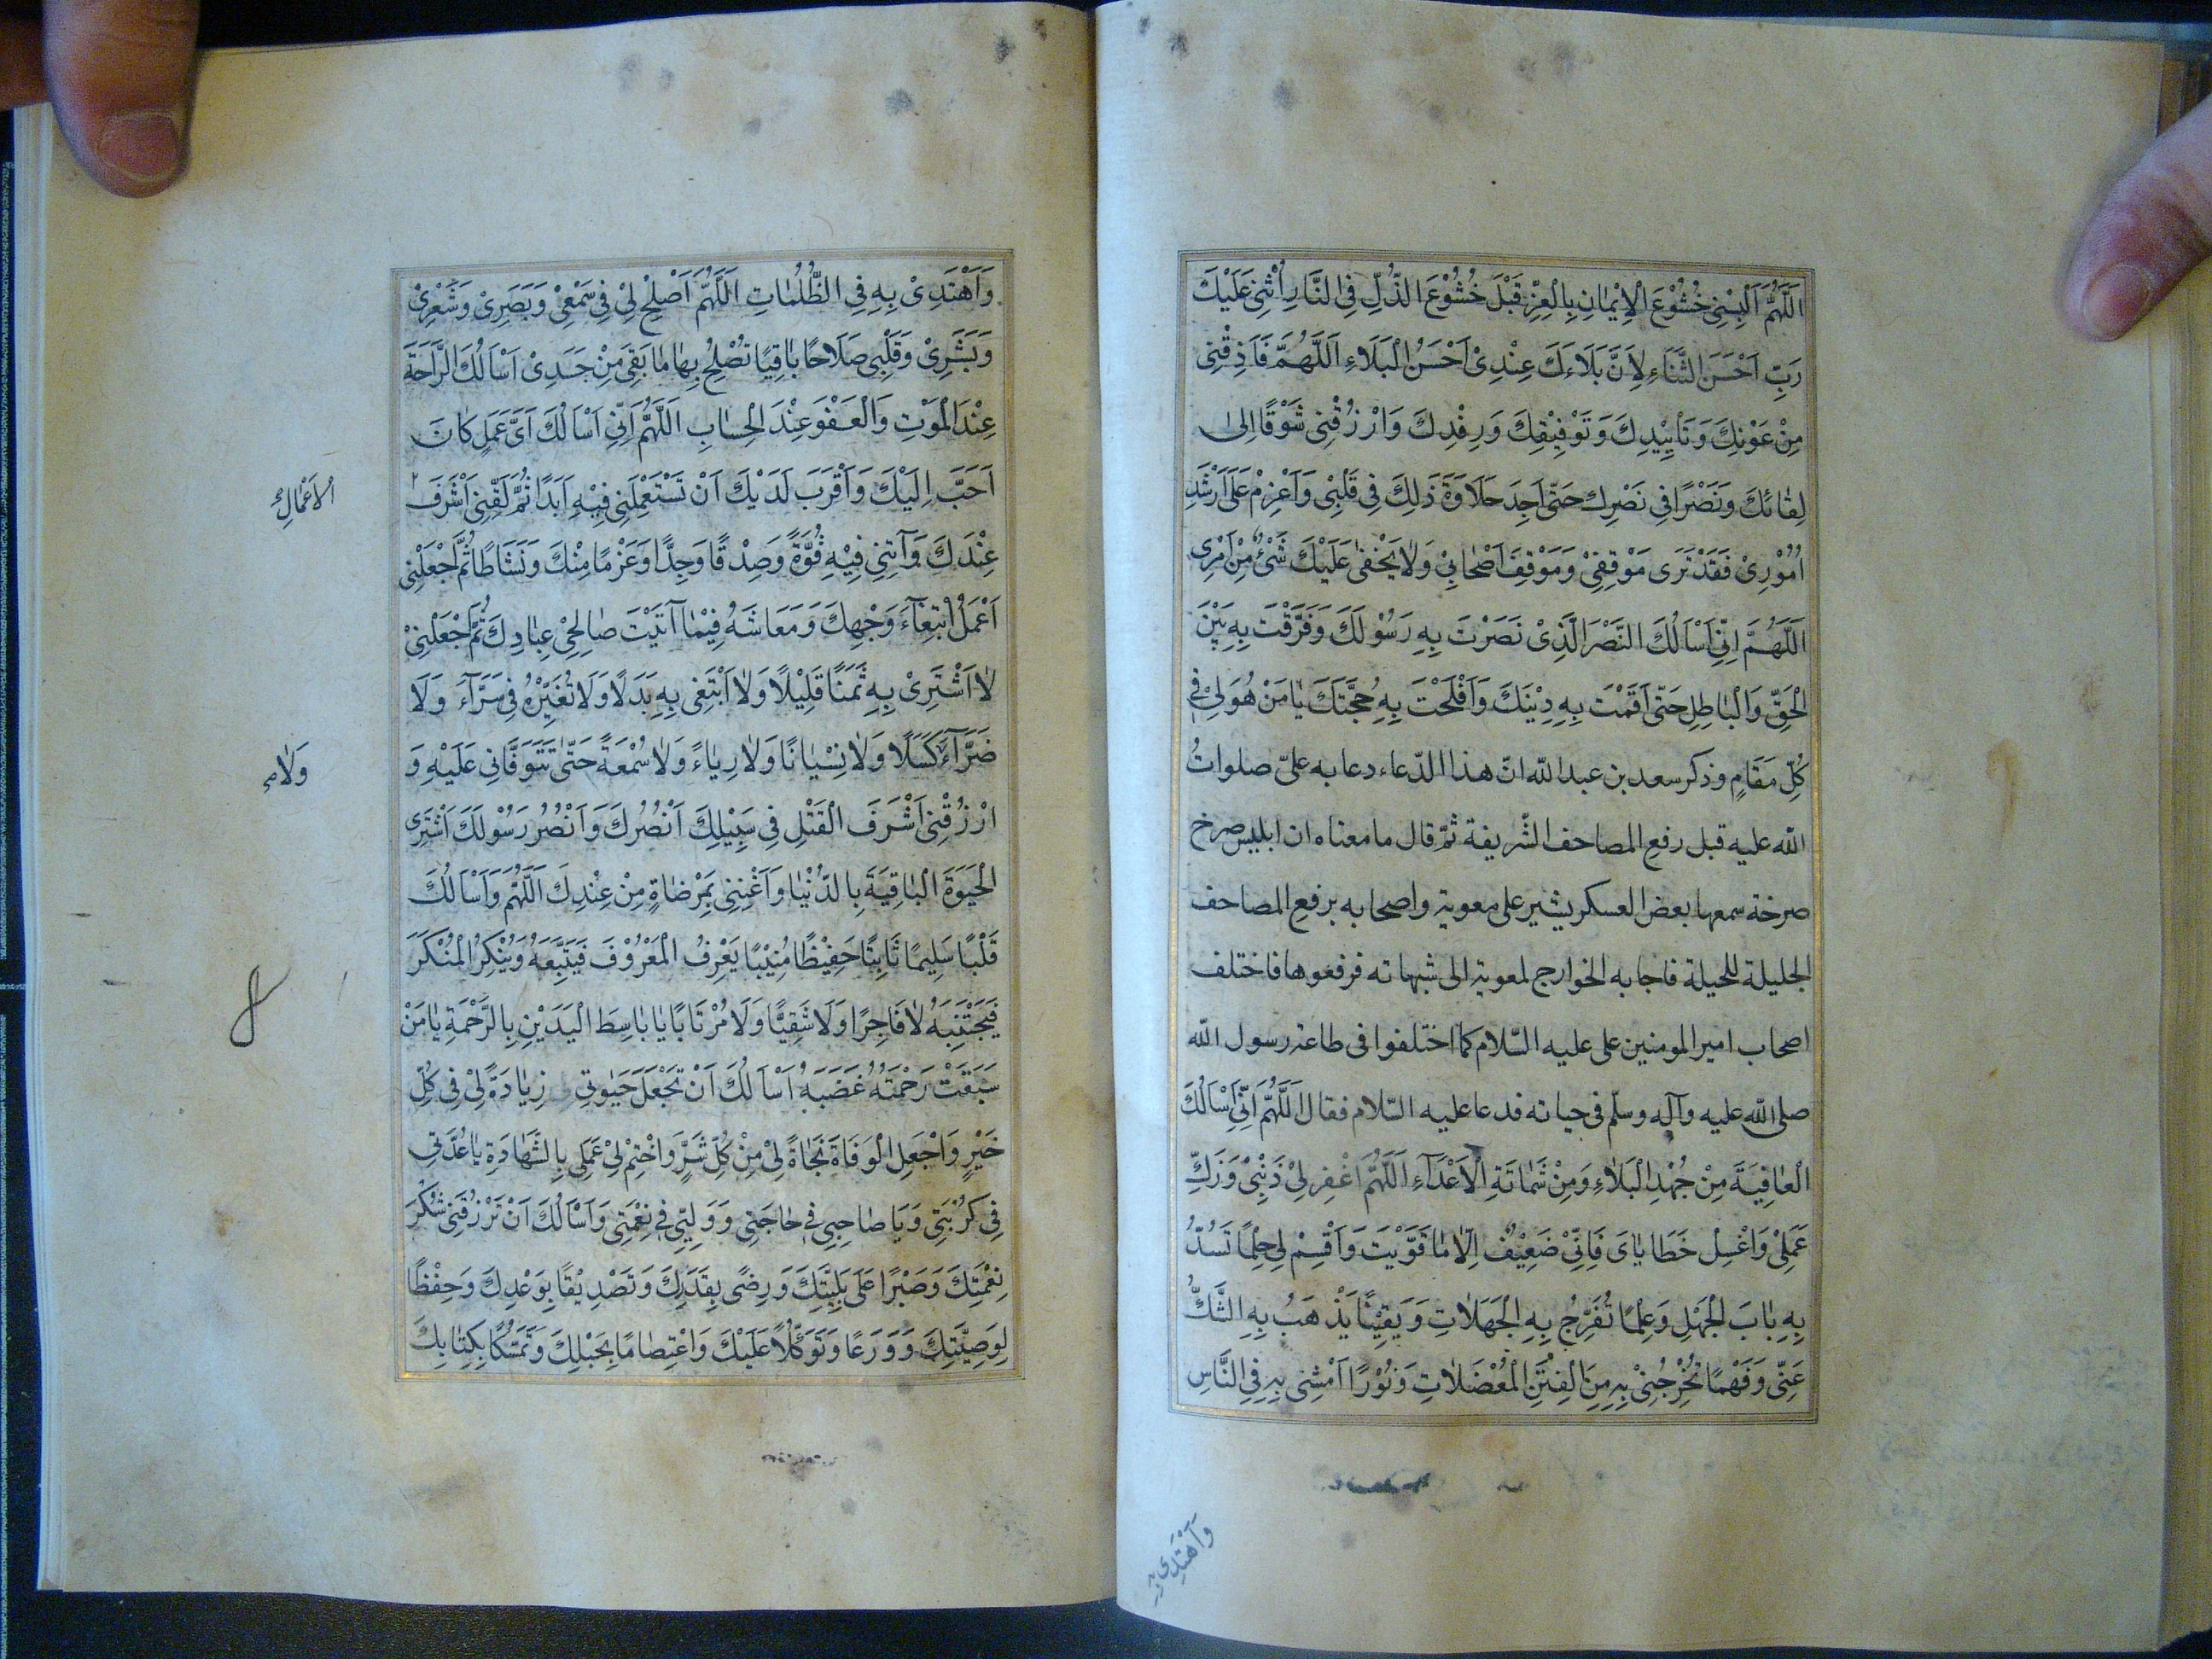 اَللّٰهُمَّ اَلْبِسْنِي خُشُوْعَ الْاِيْمٰانِ بِالْعِزِّ قَبْلَ خُشُوْعَ الذُّلِّ فِي النَّارِ اُثْنِي عَلَيْكَ
رَبِّ اَحْسَنَ الثَّنَاءِ لِاَنَّ بَلَاءَكَ عِنْدِىْ اَحْسَنُ الْبَلَاءِ اَللّٰهُمَّ فَاَذِقْنِى
مِنْ عَوْنِكَ وَتَاْيِيْدِكَ وَتَوْفِيْقِكَ وَرِفْدِكَ وَارْزُقْنِى شَوْقًا اِلىٰ
لِقٰائِكَ وَنَصْرًا فِي نَصْرِكَ حَتّٰى اَجِدَ حَلَاوَةَ ذٰلِكَ فِي قَلْبِىْ وَاَعْزِمْ عَلىٰ اَرْشَدِ
اُمُوْرِىْ فَقَدْ تَرَى مَوْقِفِىْ وَمَوْقِفَ اَصْحٰابِىْ وَلَا يَخْفٰى عَلَيْكَ شَىْءٌ مِنْ اَمْرِى
اَللّٰهُمَّ اِنِّىْ اَسْاَلُكَ النَّصْرَ الَّذِىْ نَصَرْتَ بِهِ رَسُوْلَكَ وَفَرَّقْتَ بِهِ بَيْنَ
الْحَقِّ وَالْبٰاطِلِ حَتّٰى اَقَمْتَ بِهِ دِيْنَكَ وَاَفْلَحْتَ بِهِ حُجَّتَكَ يٰا مَنْ هُوَ لِىْ فِي
كُلِّ مَقَامٍ وذكر سعد بن عبد الله انّ هذا الدّعاء دعا به علىّ صلواتُ
الله عليه قبل رفع المصاحف الشّريفة ثمّ قال ما معناه ان ابليس صرخ
صرخة سمعها بعض العسكر يشير على معوية واصحابه برفع المصاحف
الجليلة للحيلة فاجابه الخوارج لمعوية الى شبهاته فرفعوها فاختلف
اصحاب امير المومنين على عليه السّلام كما اختلفوا فى طاعة رسول الله
صلى الله عليه وآله وسلّم فى حياته فدعا عليه السّلام فقال اَللّٰهُمَّ اِنِّىْ اَسْاَلُكَ
الْعٰافِيَةَ مِنْ جُهْدِ الْبَلٰاءِ وَمِنْ شَمٰاتَةِ الْاَعْدَآءِ اَللّٰهُمَّ اغْفِر لِىْ ذَنْبِىْ وَزَكِّ
عَمَلِىْ وَاغْسِلْ خَطَايٰاىَ فَاِنِّىْ ضَعِيْفٌ اِلّٰا مٰا قَوَّيْتَ وَاَقْسِمْ لِى حِلْمًا تَسُدُّ
بِهِ بٰابَ الْجَهْلِ وَعِلْمًا تُفَرِّجُ بِهِ الْجَهَلٰاتِ وَيَقِيْنًا يَذْهَبُ بِهِ الشَّكُّ
عَنِّى وَفَهْمًا تُخْرِجُنِىْ بِهِ مِنَ الْفِتَنِ الْمُعْضَلٰاتِ وَنُوْرًا اَمْشِى بِهِ فِي النَّاسِ
وَاَهْتَدِى بِهِ
وَاَهْتَدِىْ بِهِ فِي الظُّلُمٰاتِ اَللّٰهُمَّ اَصْلِحْ لِىْ فِي سَمْعِىْ وَبَصَرِىْ وَشَعْرِىْ
وَبَشَرِىْ وَقَلْبِى صَلَاحًا بٰاقِيًا تُصْلِحُ بِهٰا مٰا بَقِىَ مِنْ جَسَدِىْ اَسْاَلُكَ الرَّاحَةَ
عِنْدَ الْمَوْتِ وَالْعَفْوَ عِنْدَ الْحِسٰابِ اَللّٰهُمَّ اِنِّى اَسْاَلُكَ اَىَّ عَمَلٍ كٰانَ
اَحَبَّ اِلَيْكَ وَاَقْرَبَ لَدَيْكَ اَنْ تَسْتَعْمِلَنِى فِيْهِ اَبَدًا ثُمَّ لَقِّنِى اَشْرَفَ
الْاَعْمٰالِ
عِنْدَكَ وَآتِنِى فِيْهِ قُوَّةً وَصِدْقًا وَجِدًّا وَعَزْمًا مِنْكَ وَنَشَاطًا ثُمَّ اجْعَلْنِى
اَعْمَلُ ابْتِغٰآءَ وَجْهِكَ وَمَعَاشَهُ فِيْمٰا آتَيْتَ صٰالِحِىْ عِبٰادِكَ ثُمَّ اجْعَلْنِىْ
لٰا اَشْتَرِىْ بِهِ ثَمَنًا قَلِيْلًا وَلٰا اَبْتَغِى بِهِ بَدَلًا وَلَا تُغَيِّرْهُ فِي سَرَّآءَ وَلَا
ضَرَّآءَ كَسَلًا وَلٰا نِسْيٰانًا وَلٰا رِيٰاءً وَلٰا سُمْعَةً حَتّٰى تَتَوَفَّانِى عَلَيْهِ وَ
وَلٰا
ارْزُقْنِى اَشْرَفَ الْقَتْلِ فِي سَبِيْلِكَ اَنْصُرُكَ وَاَنْصُرُ رَسُوْلَكَ اَشْتَرِى
الْحَيٰوةَ الْبٰاقِيَةَ بِالدُّنْيٰا وَاَغْنِنِى بِمَرْضٰاةٍ مِنْ عِنْدِكَ اَللّٰهُمَّ وَاَسْاَلُكَ
قَلْبًا سَلِيمًا ثَابِتًا حَفِيْظًا مُنِيْبًا يَعْرِفُ الْمَعْرُوْفَ فَيَتَّبِعَهُ وَيُنْكِرُ الْمُنْكَرَ
فَيَجْتَنِبَهُ لٰا فَاجِرًا وَلَا شَقِيًّا وَلَا مُرْتَابًا يٰا بٰاسِطَ الْيَدَيْنِ بِالرَّحْمَةِ يٰا مَنْ
سَبَقَتْ رَحْمَتُهُ غَضَبَهُ اَسْاَلُكَ اَنْ تَجْعَلَ حَيٰوتِى زِيٰادَةً لِىْ فِى كُلِّ
خَيْرٍ وَاجْعَلِ الْوَفَاةَ نَجَاةً لِىْ مِنْ كُلِّ شَرٍّ وَاخْتِمْ لِىْ عَمَلِى بِالشَّهٰادَةِ يٰا عُدَّتِى
فِى كُرْبَتِى وَيَا صٰاحِبِى فِي حٰاجَتِى وَوَلِيِّى فِي نِعْمَتِى وَاَسْاَلُكَ اَنْ تَرْزُقَنِى شُكْرَ
نِعْمَتِكَ وَصَبْرًا عَلٰى بَلِيَّتِكَ وَرِضًى بِقَدَرِكَ وَتَصْدِيْقًا بِوَعْدِكَ وَحِفْظًا
لِوَصِيَّتِكَ وَوَرَعًا وَتَوَكُّلًا عَلَيْكَ وَاعْتِصٰامًا بِحَبْلِكَ وَتَمَسُّكًا بِكِتٰابِكَ